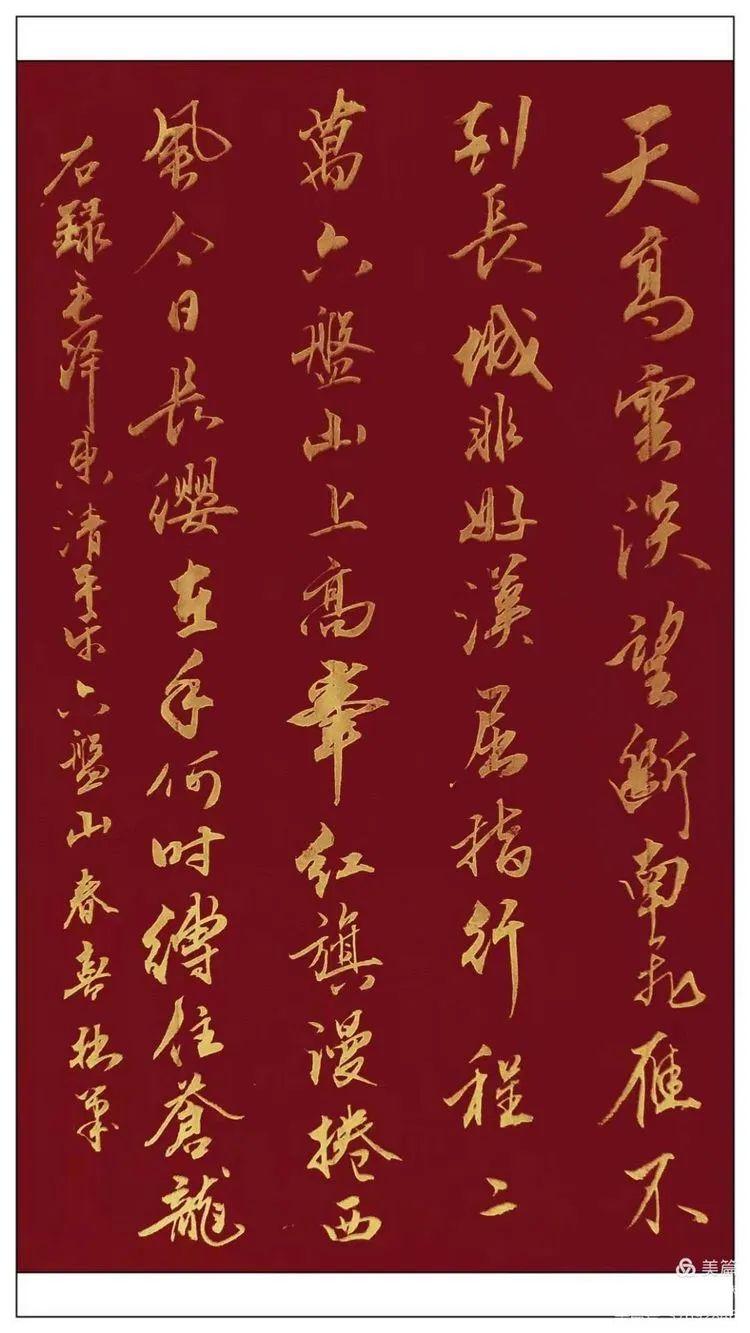 天高雲淡望斷南飛雁不
到長城非好漢屈指行程二
萬六盤山上高峯紅旗漫捲西
風今日長纓在手何時縛住蒼龍
右錄毛泽东清平乐六盤山春喜拙筆
美篇